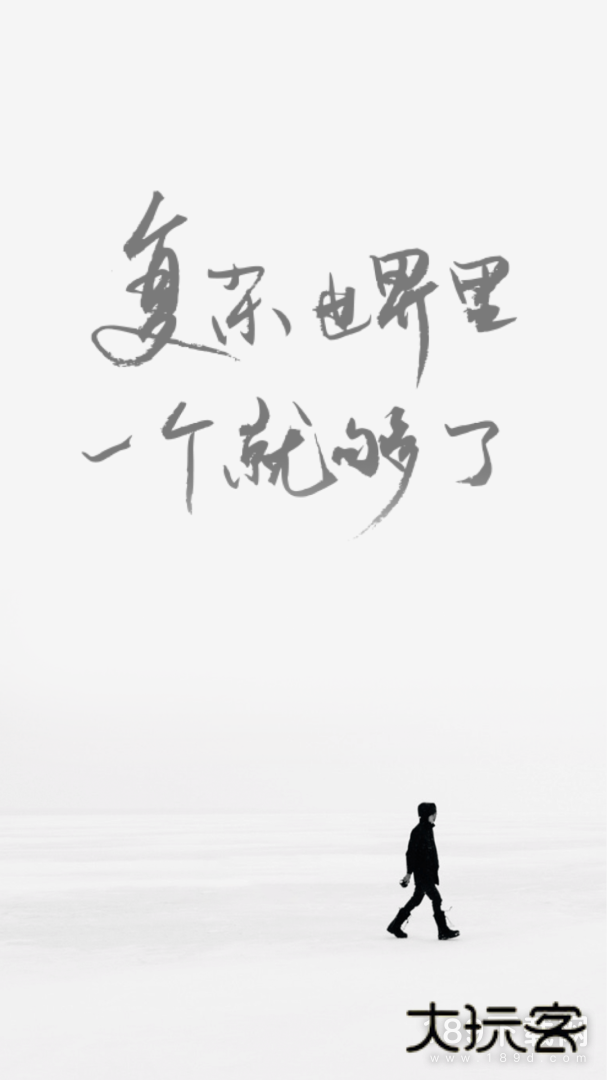 复杂世界里
一个就够了
大玩客
www.189d.com